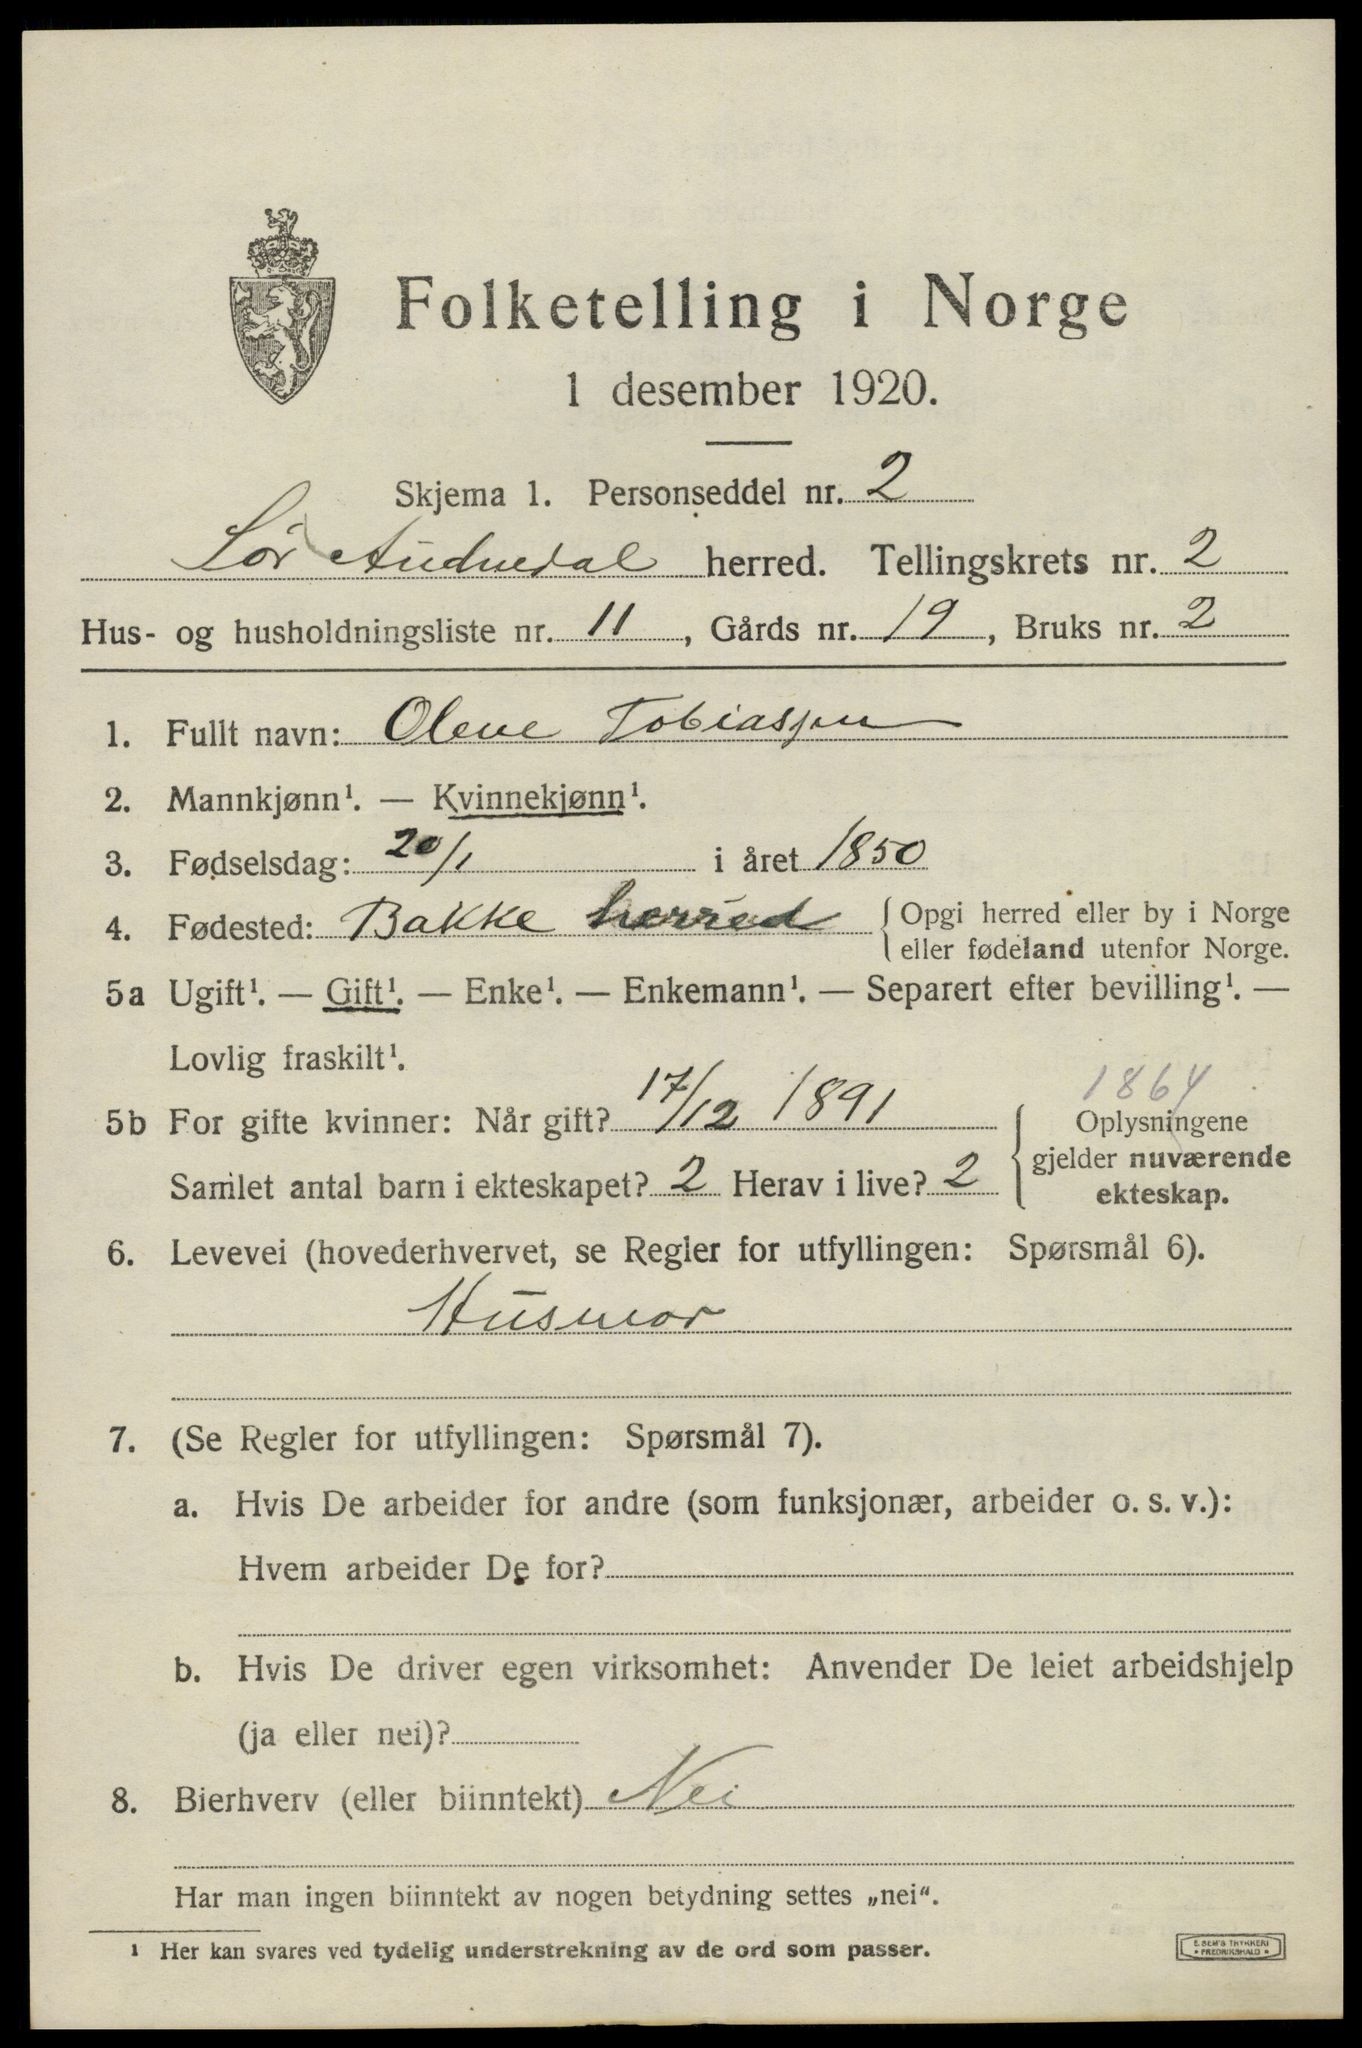 Folketelling i Norge
1 desember 1920.
Skjema 1. Personseddel nr. 2
Sør Audnedal herred. Tellingskrets nr. 2
Hus- og husholdningsliste nr. 11, Gårds nr. 19, Bruks nr. 2
1. Fullt navn: Olene Tobiassen
2. Mannkjønn¹. — Kvinnekjønn¹.
3. Fødselsdag: 20/1 i året 1850
4. Fødested: Bakke herred { Opgi herred eller by i Norge
eller fødeland utenfor Norge.
5a Ugift¹. — Gift¹. — Enke¹. — Enkemann¹. — Separert efter bevilling¹. —
Lovlig fraskilt¹.
1864
5b For gifte kvinner: Når gift? 17/12 1891 { Oplysningene
gjelder nuværende
Samlet antal barn i ekteskapet? 2 Herav i live? 2
ekteskap.
6. Levevei (hovederhvervet, se Regler for utfyllingen: Spørsmål 6).
Husmor
7. (Se Regler for utfyllingen: Spørsmål 7).
a. Hvis De arbeider for andre (som funksjonær, arbeider o. s. v.):
Hvem arbeider De for?
b. Hvis De driver egen virksomhet: Anvender De leiet arbeidshjelp
(ja eller nei)?
8. Bierhverv (eller biinntekt) Nei
Har man ingen biinntekt av nogen betydning settes „nei“.
¹ Her kan svares ved tydelig understrekning av de ord som passer.
E. SEM'S TRYKKERI
• FREDRIKSHALD •